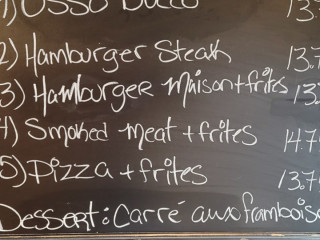 1) Osso Bucco 13.
2) Hamburger Steak 13.7
3) Hamburger Maison + frites 13
4) Smoked meat + frites 14.7
5) Pizza + frites 13.7
Dessert: Carré aux framboise